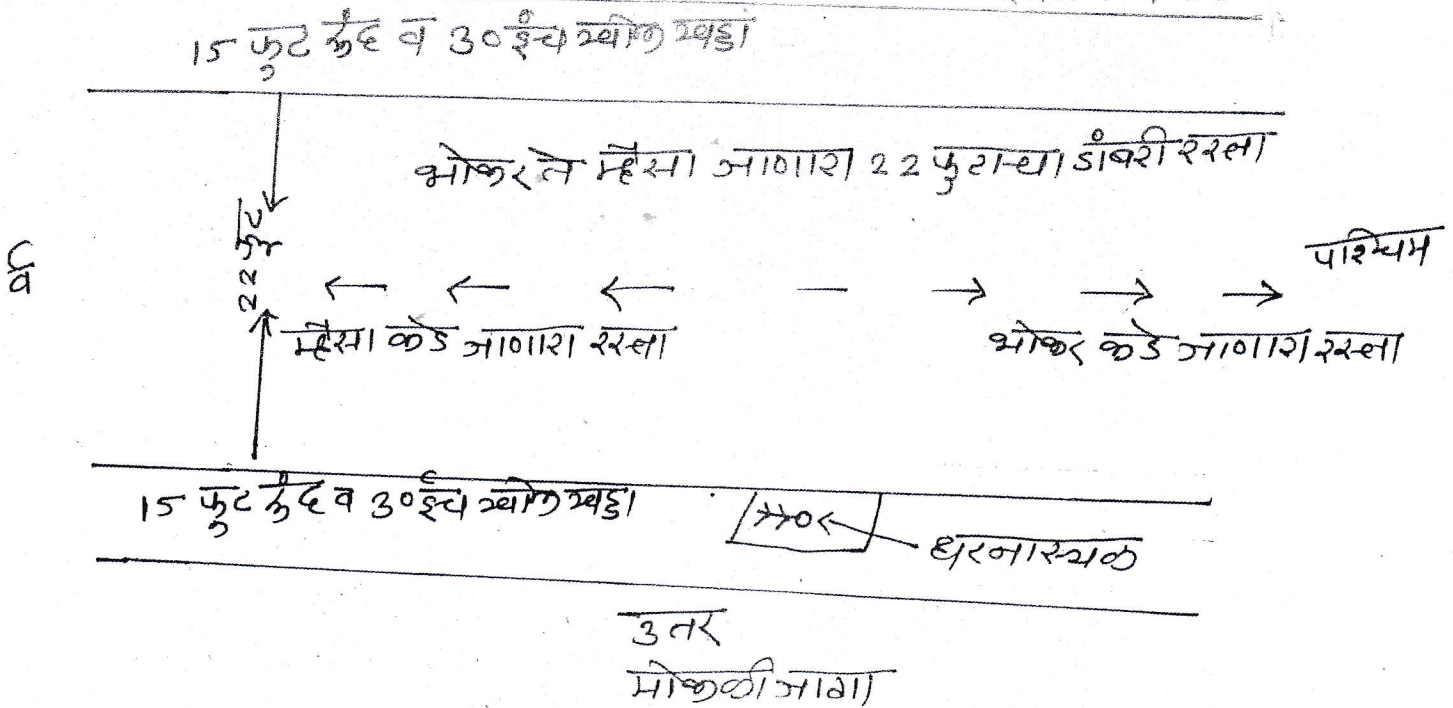 15 फुट रुंद व 30 इंच खोल खड्डा
भोकर ते म्हैसा जाणारा 22 फुटाचा डांबरी रस्ता
22 फुट
र्व
पश्चिम
म्हैसा कडे जाणारा रस्ता
भोकर कडे जाणारा रस्ता
15 फुट रुंद व 30 इंच खोल खड्डा
घटनास्थळ
उतर
मोकळी जागा